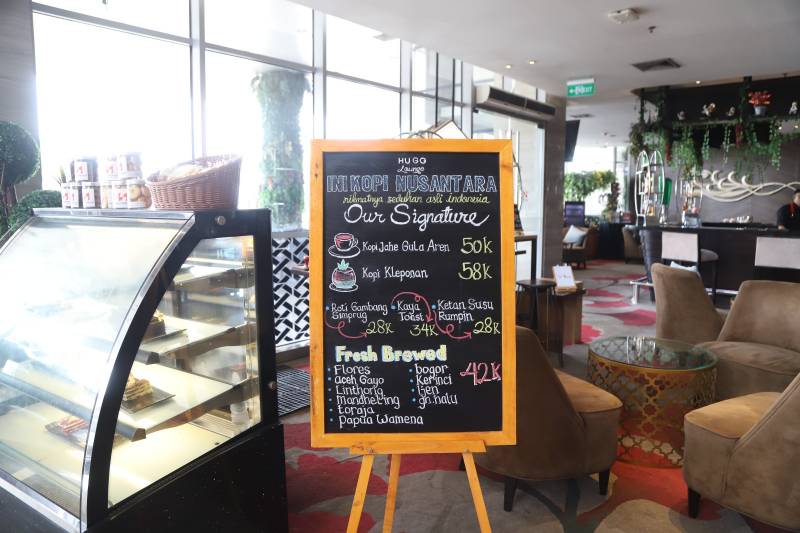 HUGO
Lounge
INI KOPI NUSANTARA
nikmatnya seduhan asli indonesia
Our Signature
Kopi Jahe Gula Aren 50K
Kopi Kleponan 58K
• Roti Gambang
Simprug
28K
• Kaya
Toast
34K
• Ketan Susu
Rumpin
28K
Fresh Brewed
42K
• Flores
• Aceh Gayo
• Linthong
• Mandheling
• toraja
• Papua Wamena
• bogor
• Kerinci
• Ijen
• gn.halu
EXIT